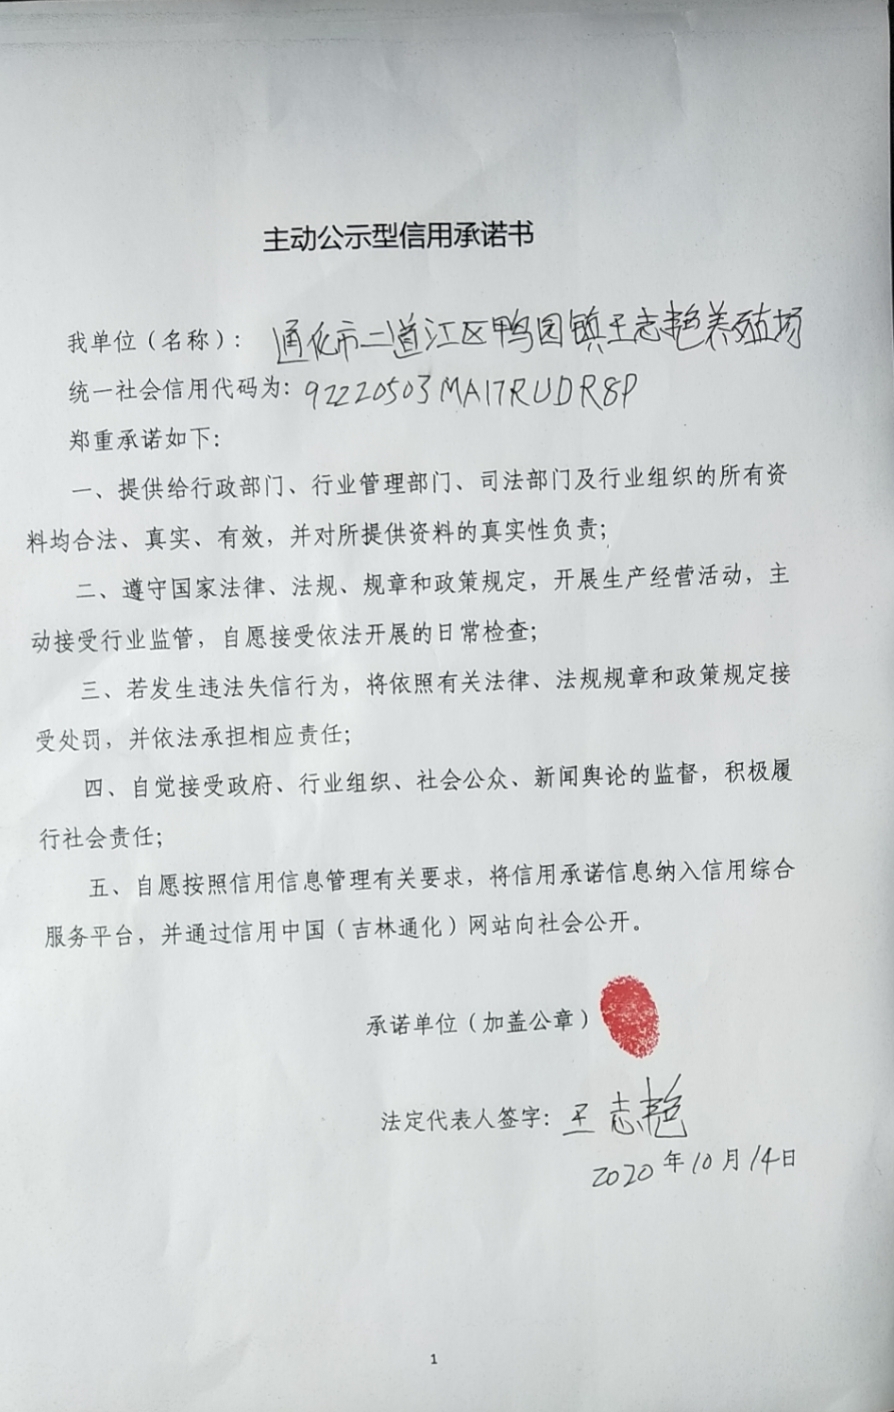 主动公示型信用承诺书
我单位（名称）：通化市二道江区鸭园镇王志艳养殖场
统一社会信用代码为：92220503MA17RUDR8P
郑重承诺如下：
一、提供给行政部门、行业管理部门、司法部门及行业组织的所有资
料均合法、真实、有效，并对所提供资料的真实性负责；
二、遵守国家法律、法规、规章和政策规定，开展生产经营活动，主
动接受行业监管，自愿接受依法开展的日常检查；
三、若发生违法失信行为，将依照有关法律、法规规章和政策规定接
受处罚，并依法承担相应责任；
四、自觉接受政府、行业组织、社会公众、新闻舆论的监督，积极履
行社会责任；
五、自愿按照信用信息管理有关要求，将信用承诺信息纳入信用综合
服务平台，并通过信用中国（吉林通化）网站向社会公开。
承诺单位（加盖公章）
法定代表人签字：王志艳
2020年10月14日
1